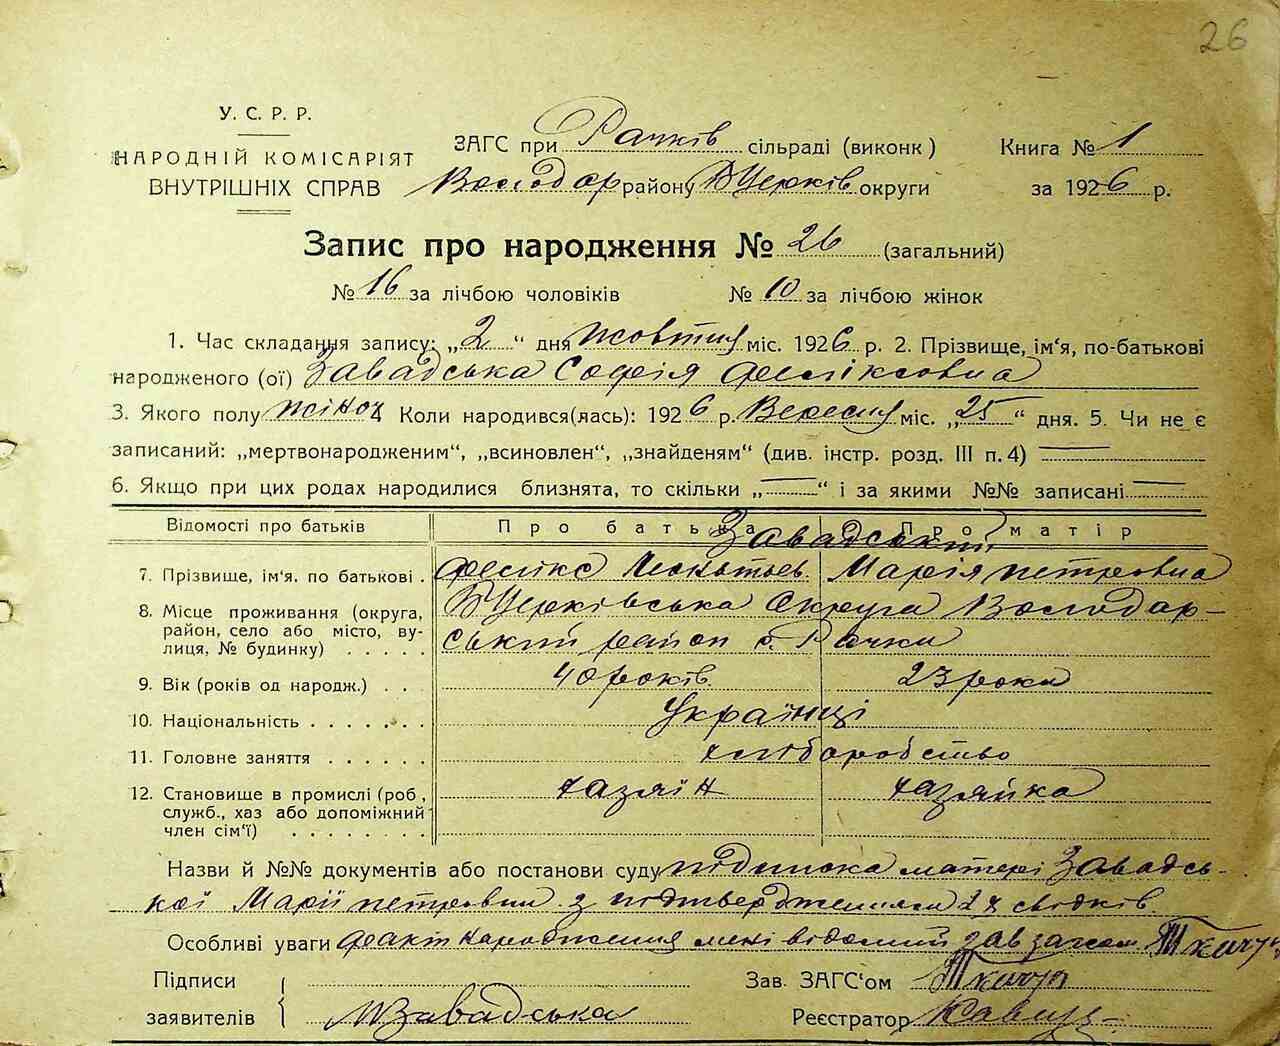 26
У. С. Р. Р.
НАРОДНІЙ КОМІСАРІЯТ
ВНУТРІШНІХ СПРАВ
ЗАГС при Рачків сільраді (виконк)
Володар району БЦерків округи
Книга № 1
за 1926 р.
Запис про народження № 26 (загальний)
№ 16 за лічбою чоловіків № 10 за лічбою жінок
1. Час складання запису: „2“ дня жовтня міс. 1926 р. 2. Прізвище, ім‘я, по-батькові
народженого (ої) Завадська Софія Феліксовна
3. Якого полу жіноч Коли народився(лась): 1926 р. Вересня міс. „25“ дня. 5. Чи не є
записаний: „мертвонародженим“, „всиновлен“, „знайденям“ (див. інстр. розд. III п. 4)
6. Якщо при цих родах народилися близнята, то скільки „ “ і за якими №№ записані
Відомості про батьків Про батька Про матір
Завадські
7. Прізвище, ім‘я, по батькові . Фелікс Леонтьев. Марія петровна
8. Місце проживання (округа, район, село або місто, вулиця, № будинку) . . . . .
БЦерківська Округа Володар-
ський район с. Рачки
9. Вік (років од народж.) . . . 40 років. 23 роки
10. Національність . . . . . . . Українці
11. Головне заняття . . . . . . хліборобство
12. Становище в промислі (роб., служб., хаз або допоміжний член сім‘ї) . . . . . . . . хазяїн хазяйка
Назви й №№ документів або постанови суду підписка матері Завадсь-
кої Марії петровни з підтвердженням 2х свідків.
Особливі уваги факт народження мені відомий зав загсом Ткачук
Підписи
заявителів МЗавадська
Зав. ЗАГС‘ом Ткачук
Реєстратор